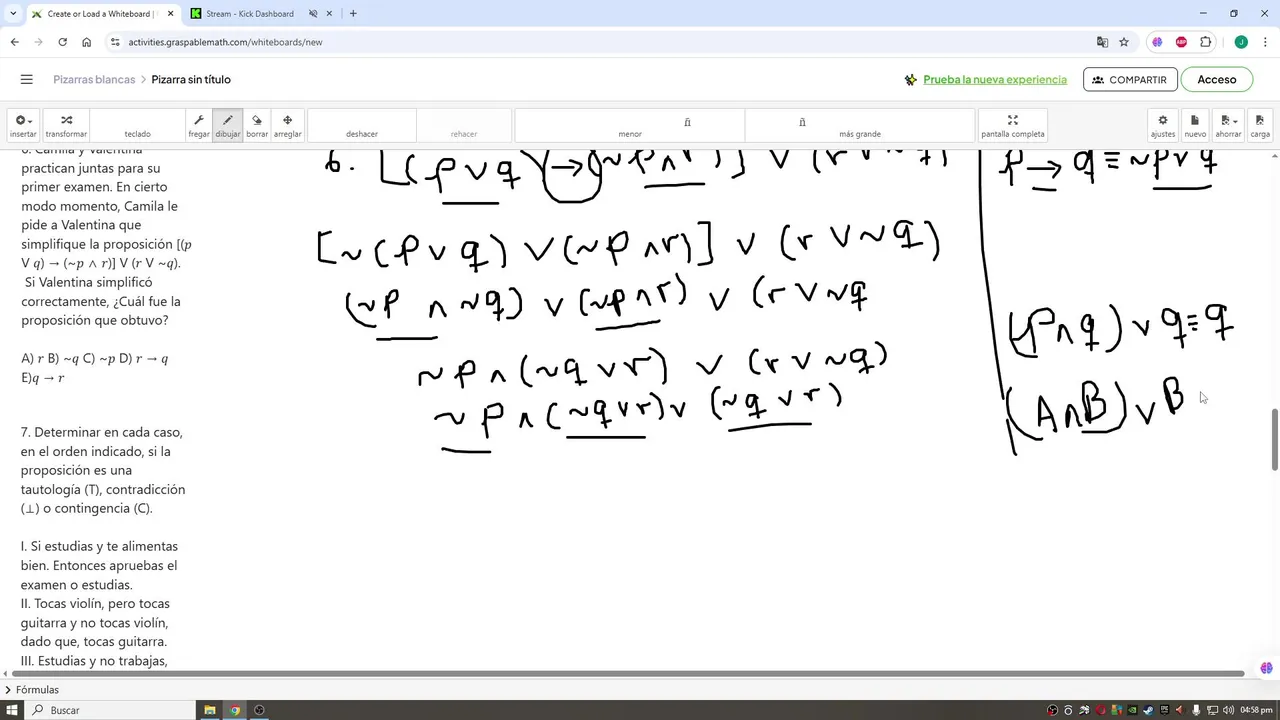 Create or Load a Whiteboard |
Stream - Kick Dashboard
activities.graspablemath.com/whiteboards/new
ABP
J
Pizarras blancas > Pizarra sin título
Prueba la nueva experiencia
COMPARTIR
Acceso
insertar transformar teclado fregar dibujar borrar arreglar deshacer rehacer menor más grande pantalla completa ajustes nuevo ahorrar carga
ñ ñ
6. Camila y Valentina
practican juntas para su
primer examen. En cierto
modo momento, Camila le
pide a Valentina que
simplifique la proposición [(p
V q) → (~p ∧ r)] V (r V ~q).
Si Valentina simplificó
correctamente, ¿Cuál fue la
proposición que obtuvo?
A) r B) ~q C) ~p D) r → q
E)q → r
7. Determinar en cada caso,
en el orden indicado, si la
proposición es una
tautología (T), contradicción
(⊥) o contingencia (C).
I. Si estudias y te alimentas
bien. Entonces apruebas el
examen o estudias.
II. Tocas violín, pero tocas
guitarra y no tocas violín,
dado que, tocas guitarra.
III. Estudias y no trabajas,
6. [(p ∨ q) → (~p ∧ r)] ∨ (r ∨ ~q)
[~(p ∨ q) ∨ (~p ∧ r)] ∨ (r ∨ ~q)
(~p ∧ ~q) ∨ (~p ∧ r) ∨ (r ∨ ~q
~p ∧ (~q ∨ r) ∨ (r ∨ ~q)
~p ∧ (~q ∨ r) ∨ (~q ∨ r)
p → q ≡ ~p ∨ q
(p ∧ q) ∨ q ≡ q
(A ∧ B) ∨ B
Fórmulas
Buscar
04:58 pm